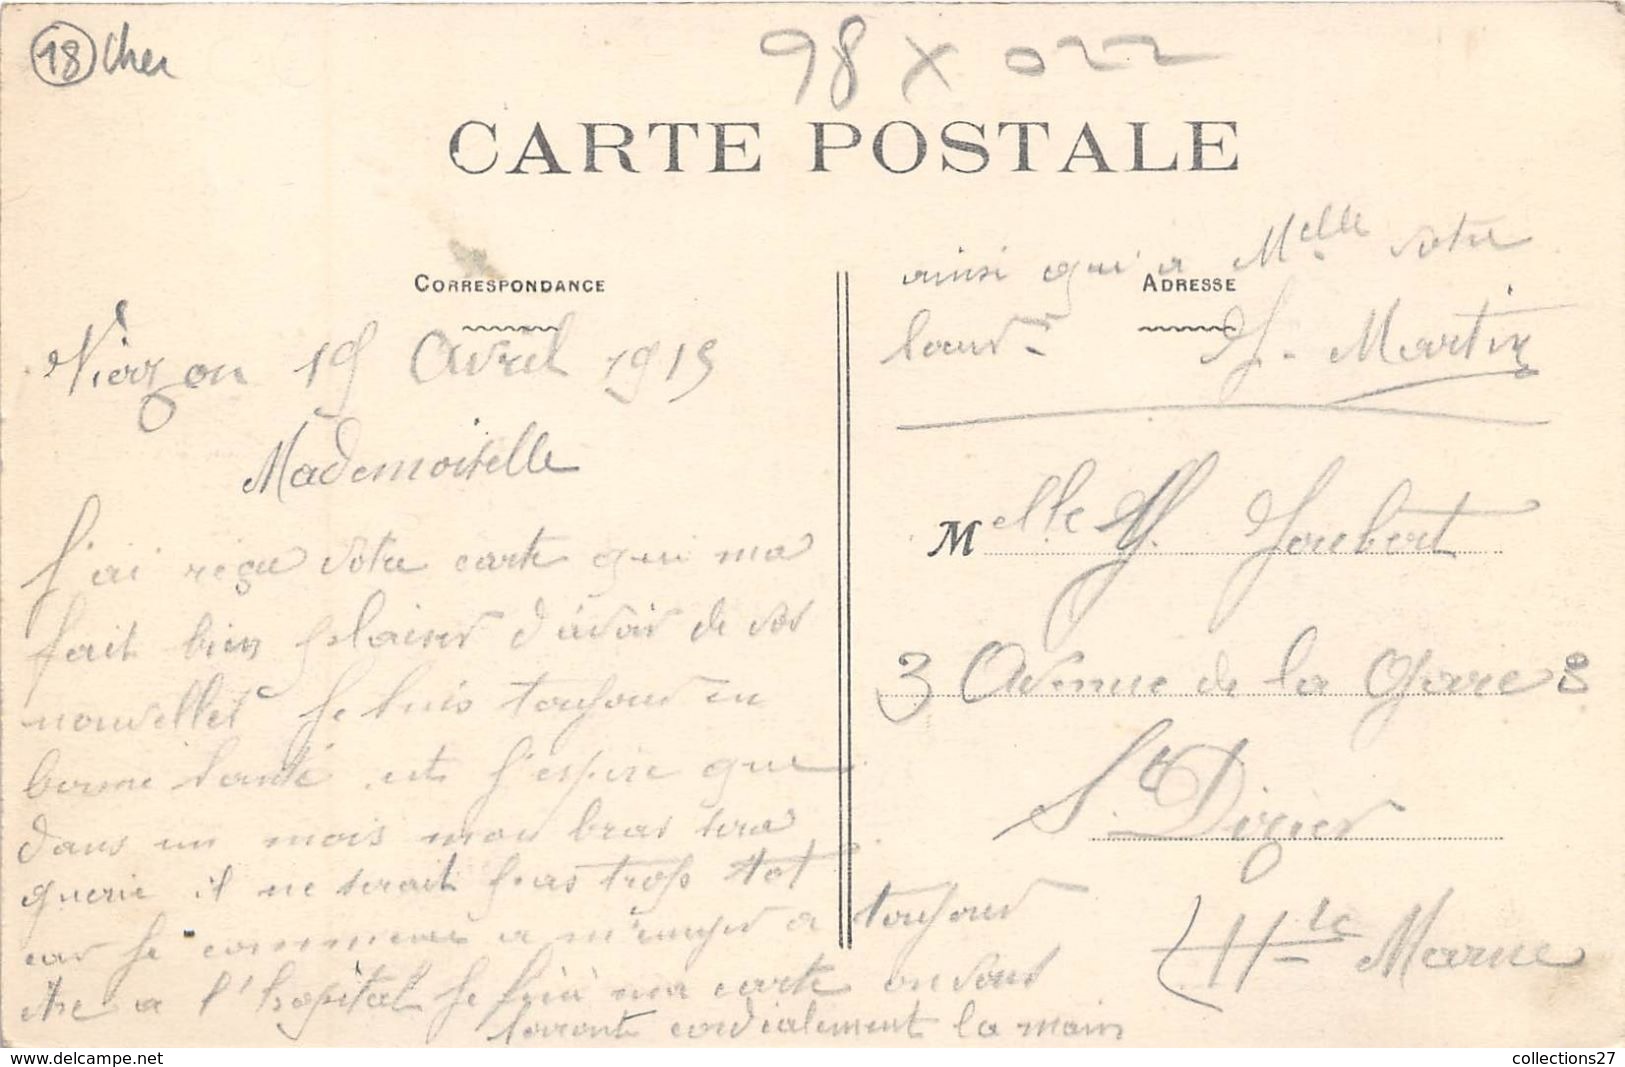 18 Cher
98 x 022
CARTE POSTALE
CORRESPONDANCE
ADRESSE
Vierzon 19 Avril 1915
Mademoiselle
J'ai reçu votre carte qui ma
fait bien plaiser d'avoir de vos
nouvelles Je suis toujour en
bonne santé et j'espire que
dans un mois mon bras sera
guerie il ne serait pas trop tot
car je commence a m'ennuyer a toujour
être a l'hopital Je fini ma carte en vous
serrant cordialement la main
ainsi qui a Melle votre
sœur. J. Martin
Melle Y. Joubert
3 Avenue de la Gare
St Dizier
Hte Marne
collections27